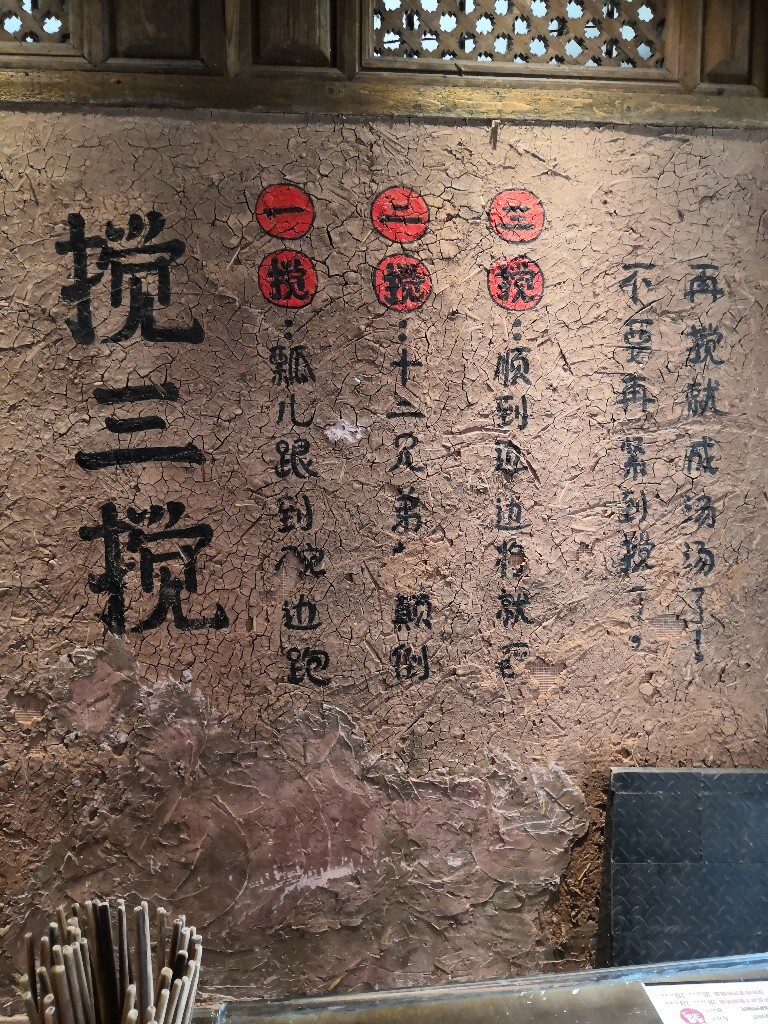 搅三搅
一搅:瓢儿跟到碗边跑
二搅:十二兄弟,颠倒
三搅:顺到边将就
不要再紧到搅了,
再搅就成汤汤了!